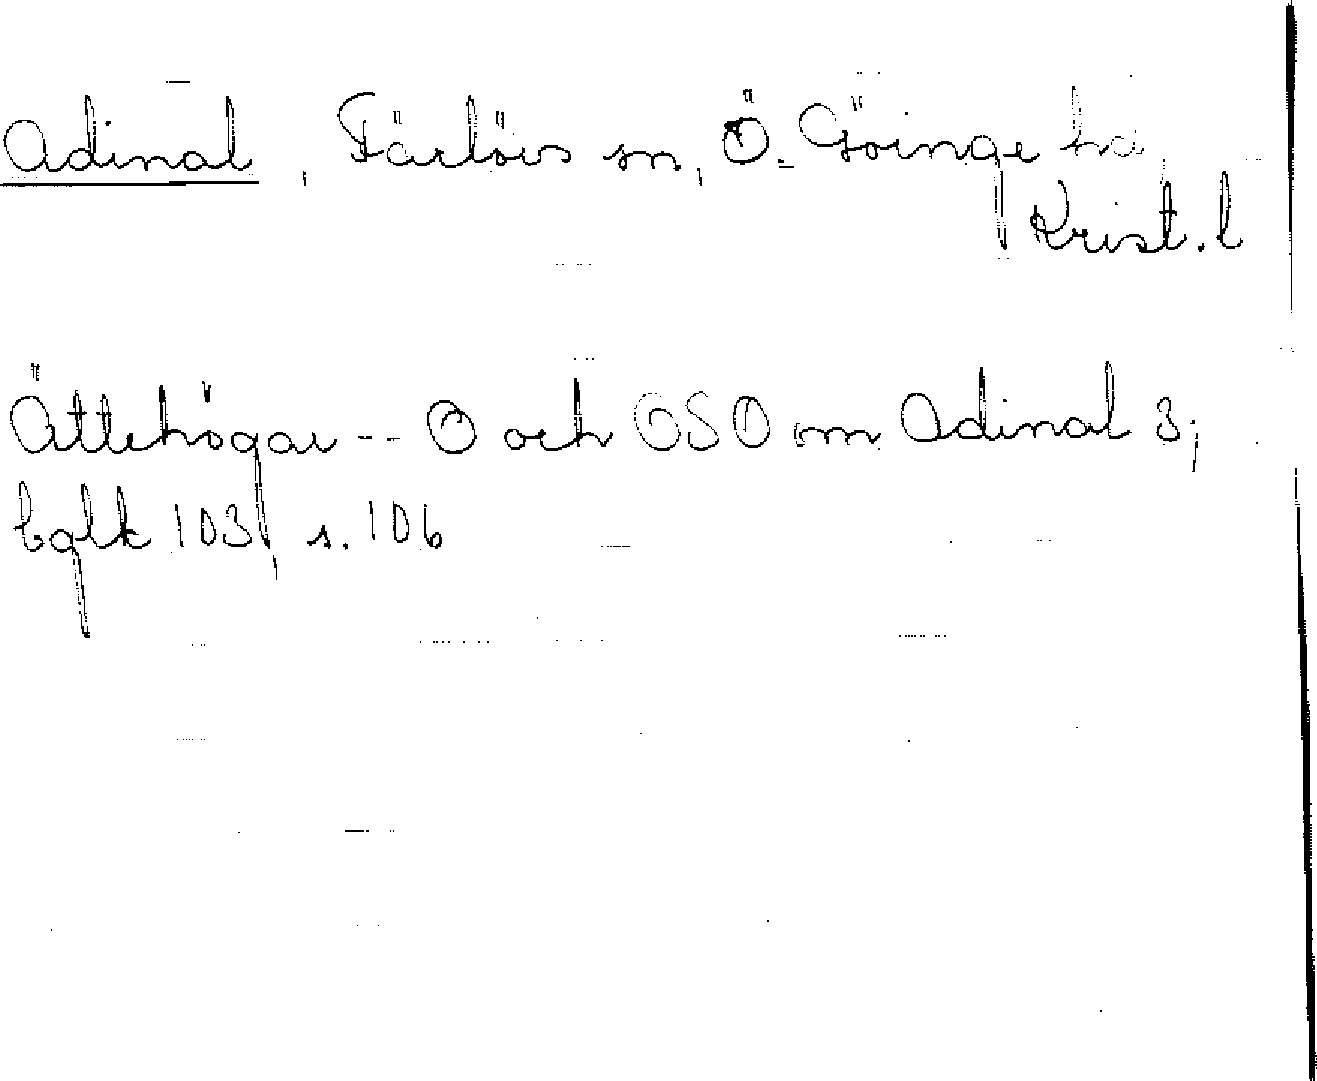 Adinal, Färlövs sn, Ö. Göinge hd,
Krist. l
Ättehögar -- O och OSO om Adinal 3,
bglk 103, s. 106